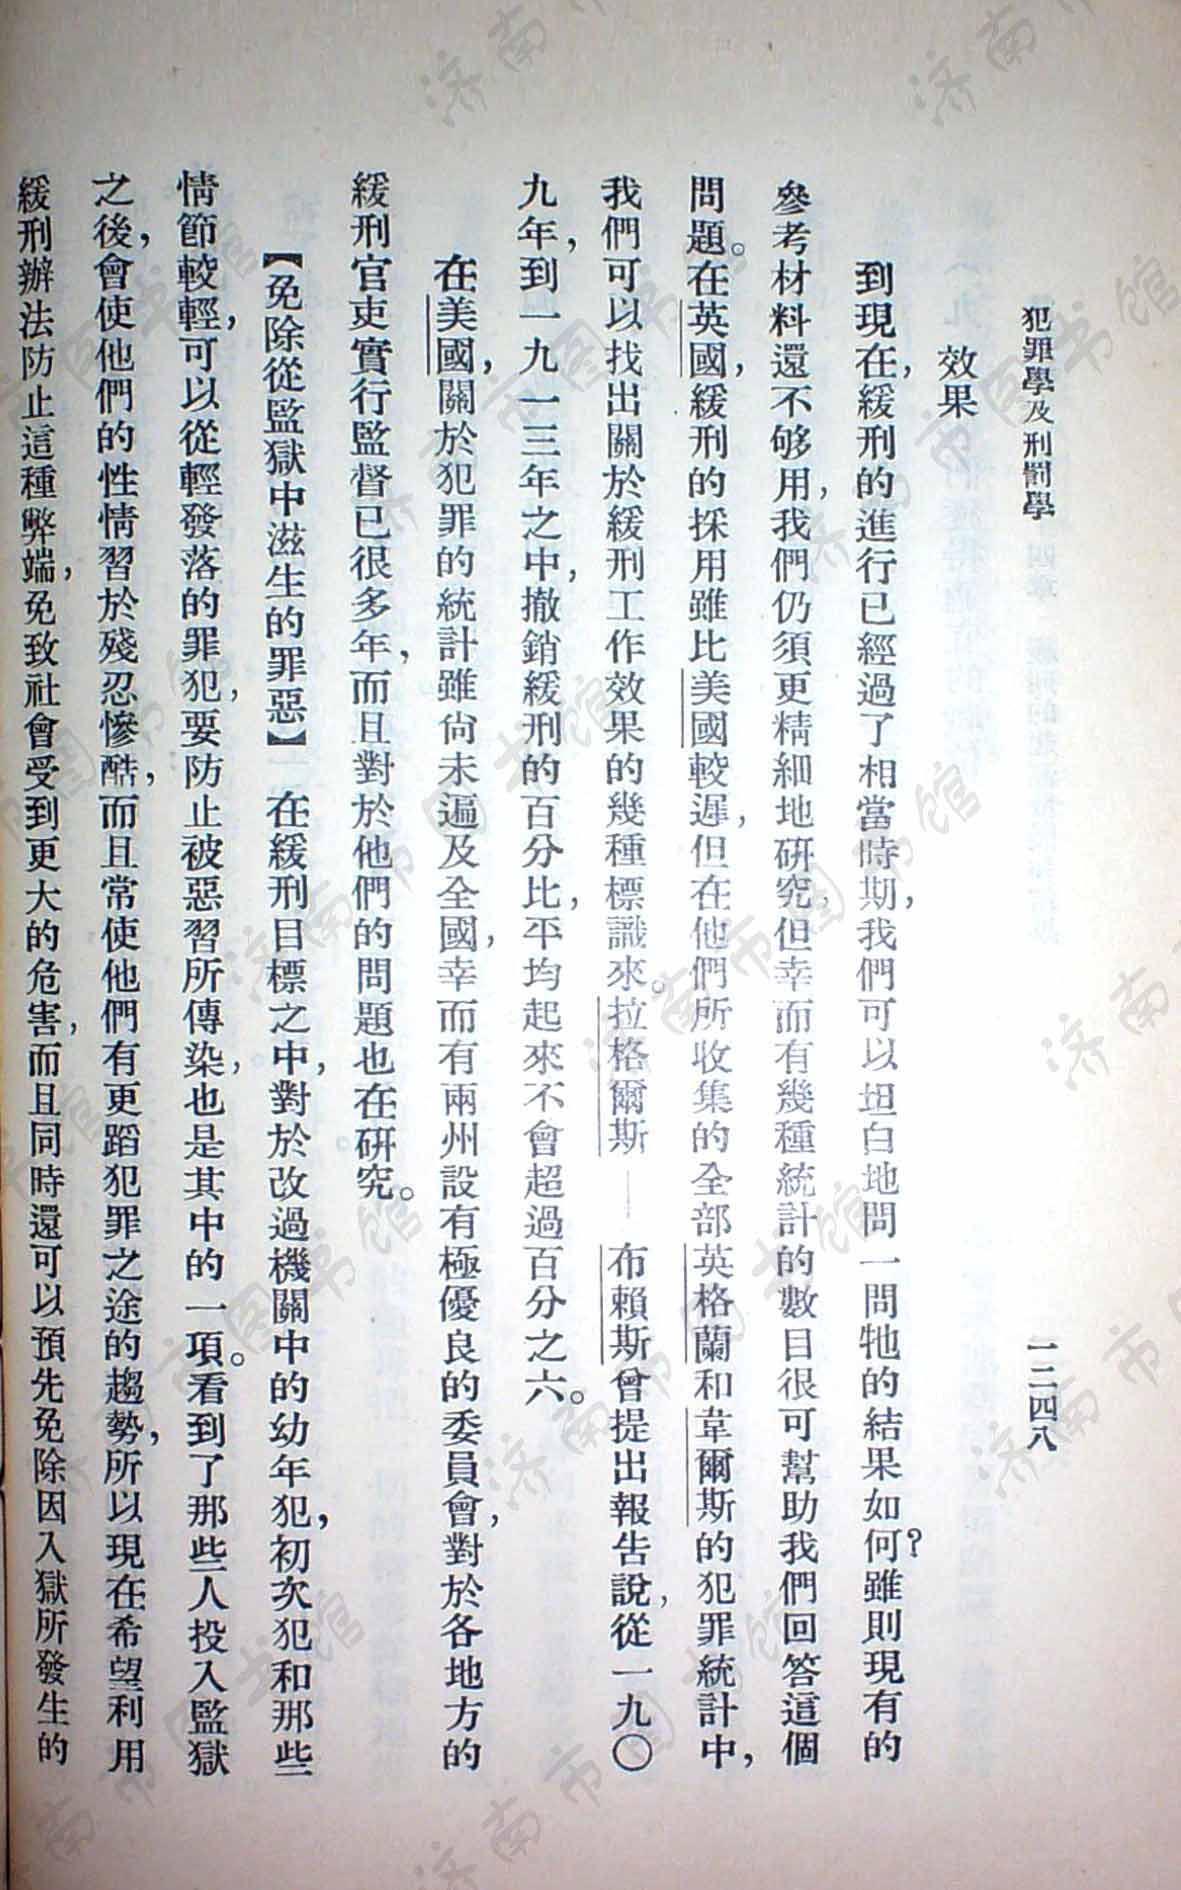 犯罪學及刑罰學
一二四八
效果
到現在，緩刑的進行已經過了相當時期，我們可以坦白地問一問牠的結果如何？雖則現有的
參考材料還不够用，我們仍須更精細地研究，但幸而有幾種統計的數目很可幫助我們回答這個
問題。在英國，緩刑的採用雖比美國較遲，但在他們所收集的全部英格蘭和韋爾斯的犯罪統計中，
我們可以找出關於緩刑工作效果的幾種標識來。拉格爾斯——布賴斯曾提出報告說，從一九〇
九年，到一九一三年之中，撤銷緩刑的百分比，平均起來不會超過百分之六。
在美國，關於犯罪的統計雖尙未遍及全國，幸而有兩州設有極優良的委員會，對於各地方的
緩刑官吏實行監督已很多年，而且對於他們的問題也在研究。
【免除從監獄中滋生的罪惡】　在緩刑目標之中，對於改過機關中的幼年犯，初次犯和那些
情節較輕，可以從輕發落的罪犯，要防止被惡習所傳染，也是其中的一項。看到了那些人投入監獄
之後，會使他們的性情習於殘忍慘酷，而且常使他們有更蹈犯罪之途的趨勢，所以現在希望利用
緩刑辦法防止這種弊端，免致社會受到更大的危害，而且同時還可以預先免除因入獄所發生的
济南市图书馆